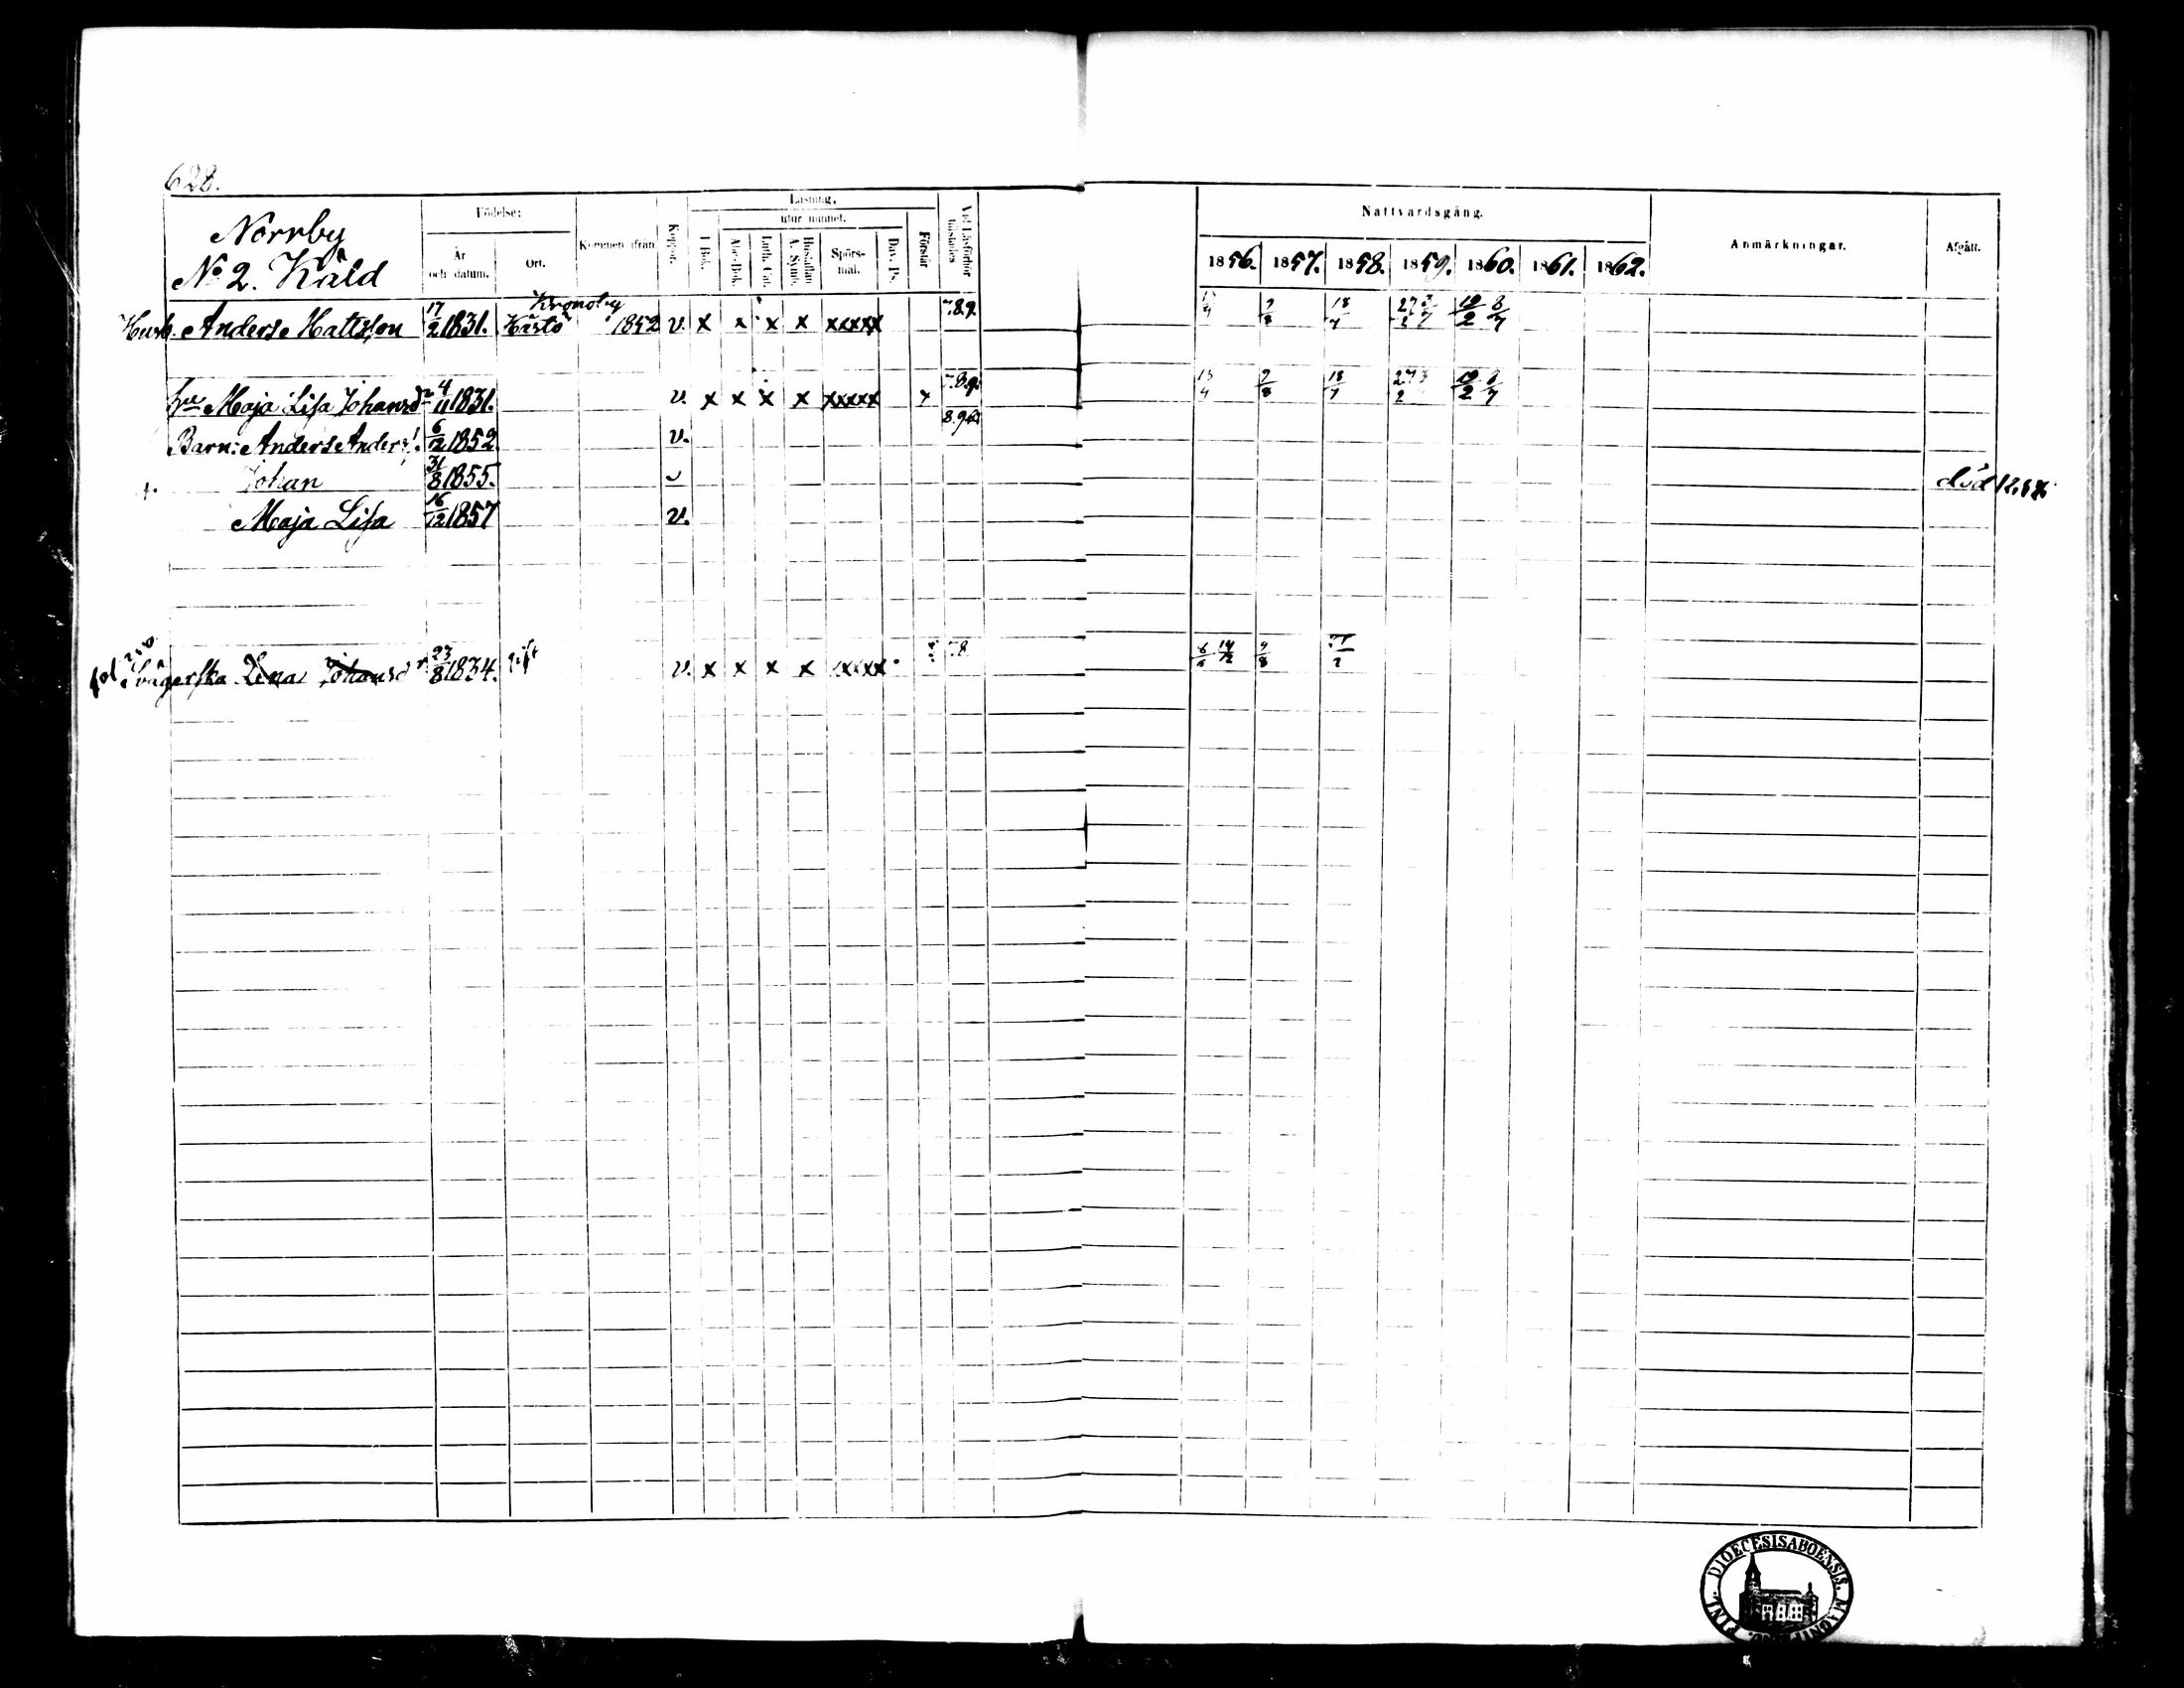 628.
Norrby
No 2. Kåld
Födelse:
År och datum.
Ort.
Kommen ifrån
Koppor.
Läsning,
utur minnet.
I Bok.
Abc-Bok.
Luth. Cat.
Hustaflan A. Symb.
Spörsmål.
Dav. Ps.
Förstår
Vid Läsförhör
Nattvardsgång.
1856. 1857. 1858. 1859. 1860. 1861. 1862.
Anmärkningar.
Afgått.
Husb. Anders Mattsson 17/2 1831. Kronoby 1852 v. x x x x xxxxx 7.8.9. 13/4 2/8 18/7 27/2 3/7 19/2 8/7
hu Maja Lisa Johansdr 4/11 1831. v. x x x x xxxxx x 7.8.9. 13/4 2/8 18/7 27/2 19/2 8/7
Barn: Anders Anders 6/12 1852 v.
Johan 31/8 1855. v död
Maja Lisa 16/12 1857 v.
Svägerska Lena Johansdr 23/8 1834. gift v. x x x x xxxx 7.8.
DIOECESIS ABOENSIS. FINL.